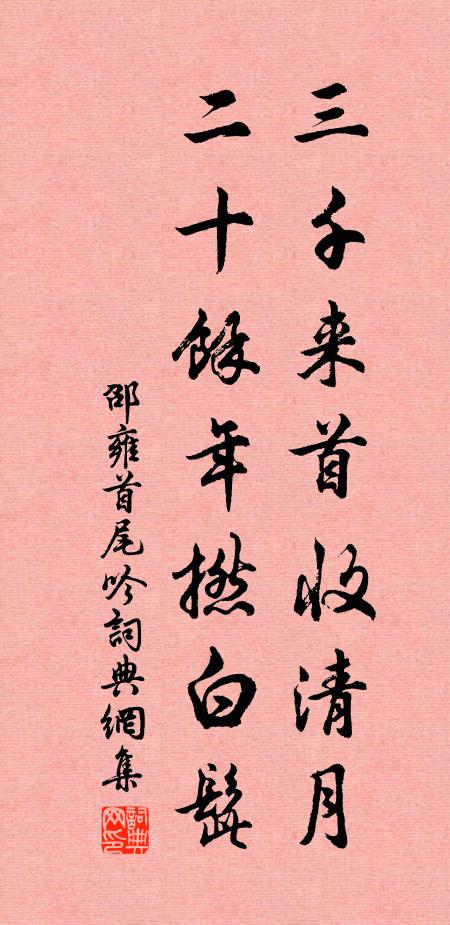 三千来首收清月
二十餘年撚白髭
邵雍首尾吟詞典網集
詞典网印